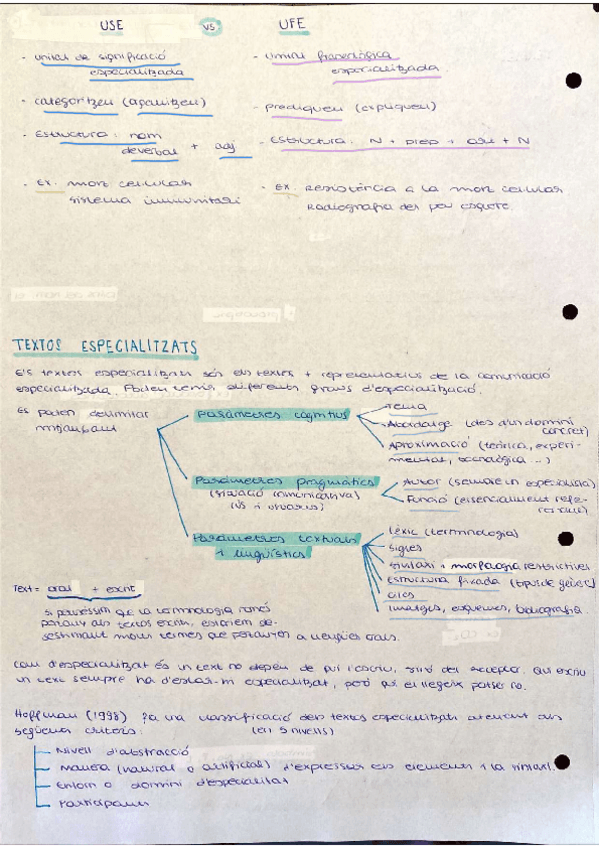 USE vs UFE
- unitat de significació especialitzada
- unitat fraseològica especialitzada
- categoritzen (apanitzen)
- prediquen (expliquen)
- Estructura: nom deverbal + adj
- Estructura: N + prep + art + N
- Ex. mort cel·lular
sistema immunitari
- Ex. Resistència a la mort cel·lular
Radiografia del peu esquerre
TEXTOS ESPECIALITZATS
Els textos especialitzats són els textos + representatius de la comunicació
especialitzada. Poden tenir diferents graus d'especialització.
Es poden delimitar
mitjançant
Paràmetres cognitius
Tema
Abordatge (des d'un domini
concret)
Aproximació (teòrica, experi-
mental, tecnològica ...)
Paràmetres pragmàtics
(situació comunicativa)
(ús i usuaris)
Autor (sempre un especialista)
Funció (essencialment refe-
rencial)
Paràmetres textuals
i lingüístics
Lèxic (terminologia)
Sigles
Sintaxi i morfologia restrictives
Estructura fixada (tipus de gènere)
Cites
Imatges, esquemes, bibliografia
Text = oral + escrit
Si penséssim que la terminologia només
pertany als textos escrits, estaríem de-
sestimant molts termes que pertanyen a llengües orals.
Com d'especialitzat és un text no depèn de qui l'escriu, sinó del receptor. Qui escriu
un text sempre ha d'estar-hi especialitzat, però qui el llegeix potser no.
Hoffman (1998) fa una classificació dels textos especialitzats atenent als
següents criteris: (en 5 nivells)
Nivell d'abstracció
Manera (natural o artificial) d'expressar els elements i la sintaxi.
Entorn o domini d'especialitat
Participants